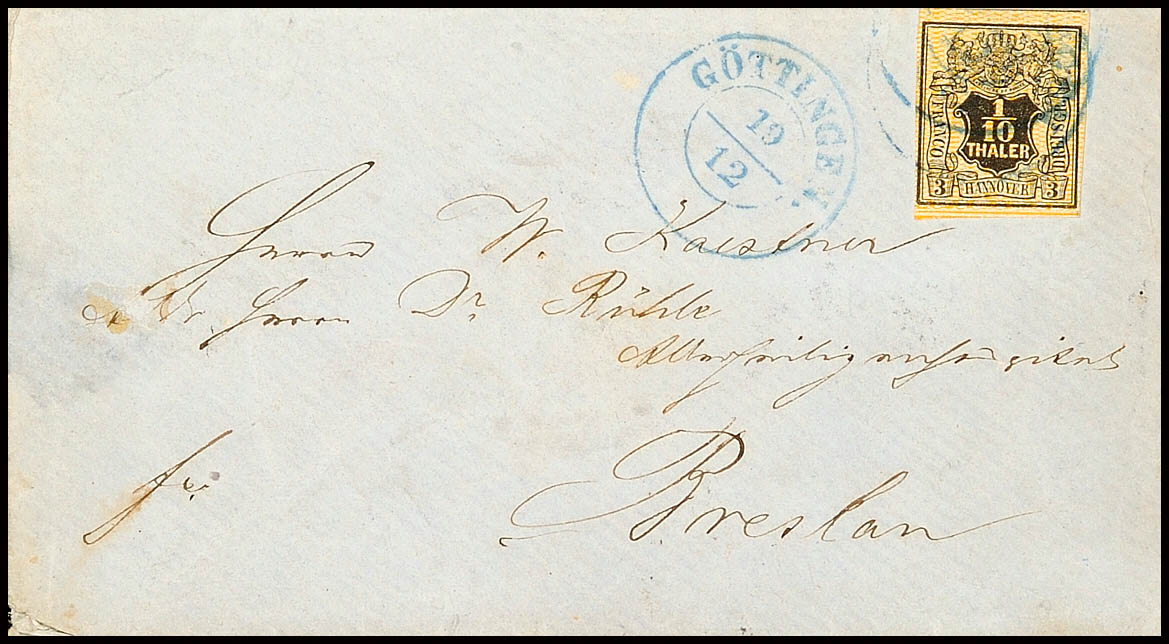 GÖTTINGEN
19
12
FRANCO
1
10
THALER
DREI SGR
3 HANNOVER 3
Herrn W. Kaestner
Herrn Dr Rühle
Allerheiligenhospital
fr.
Breslau